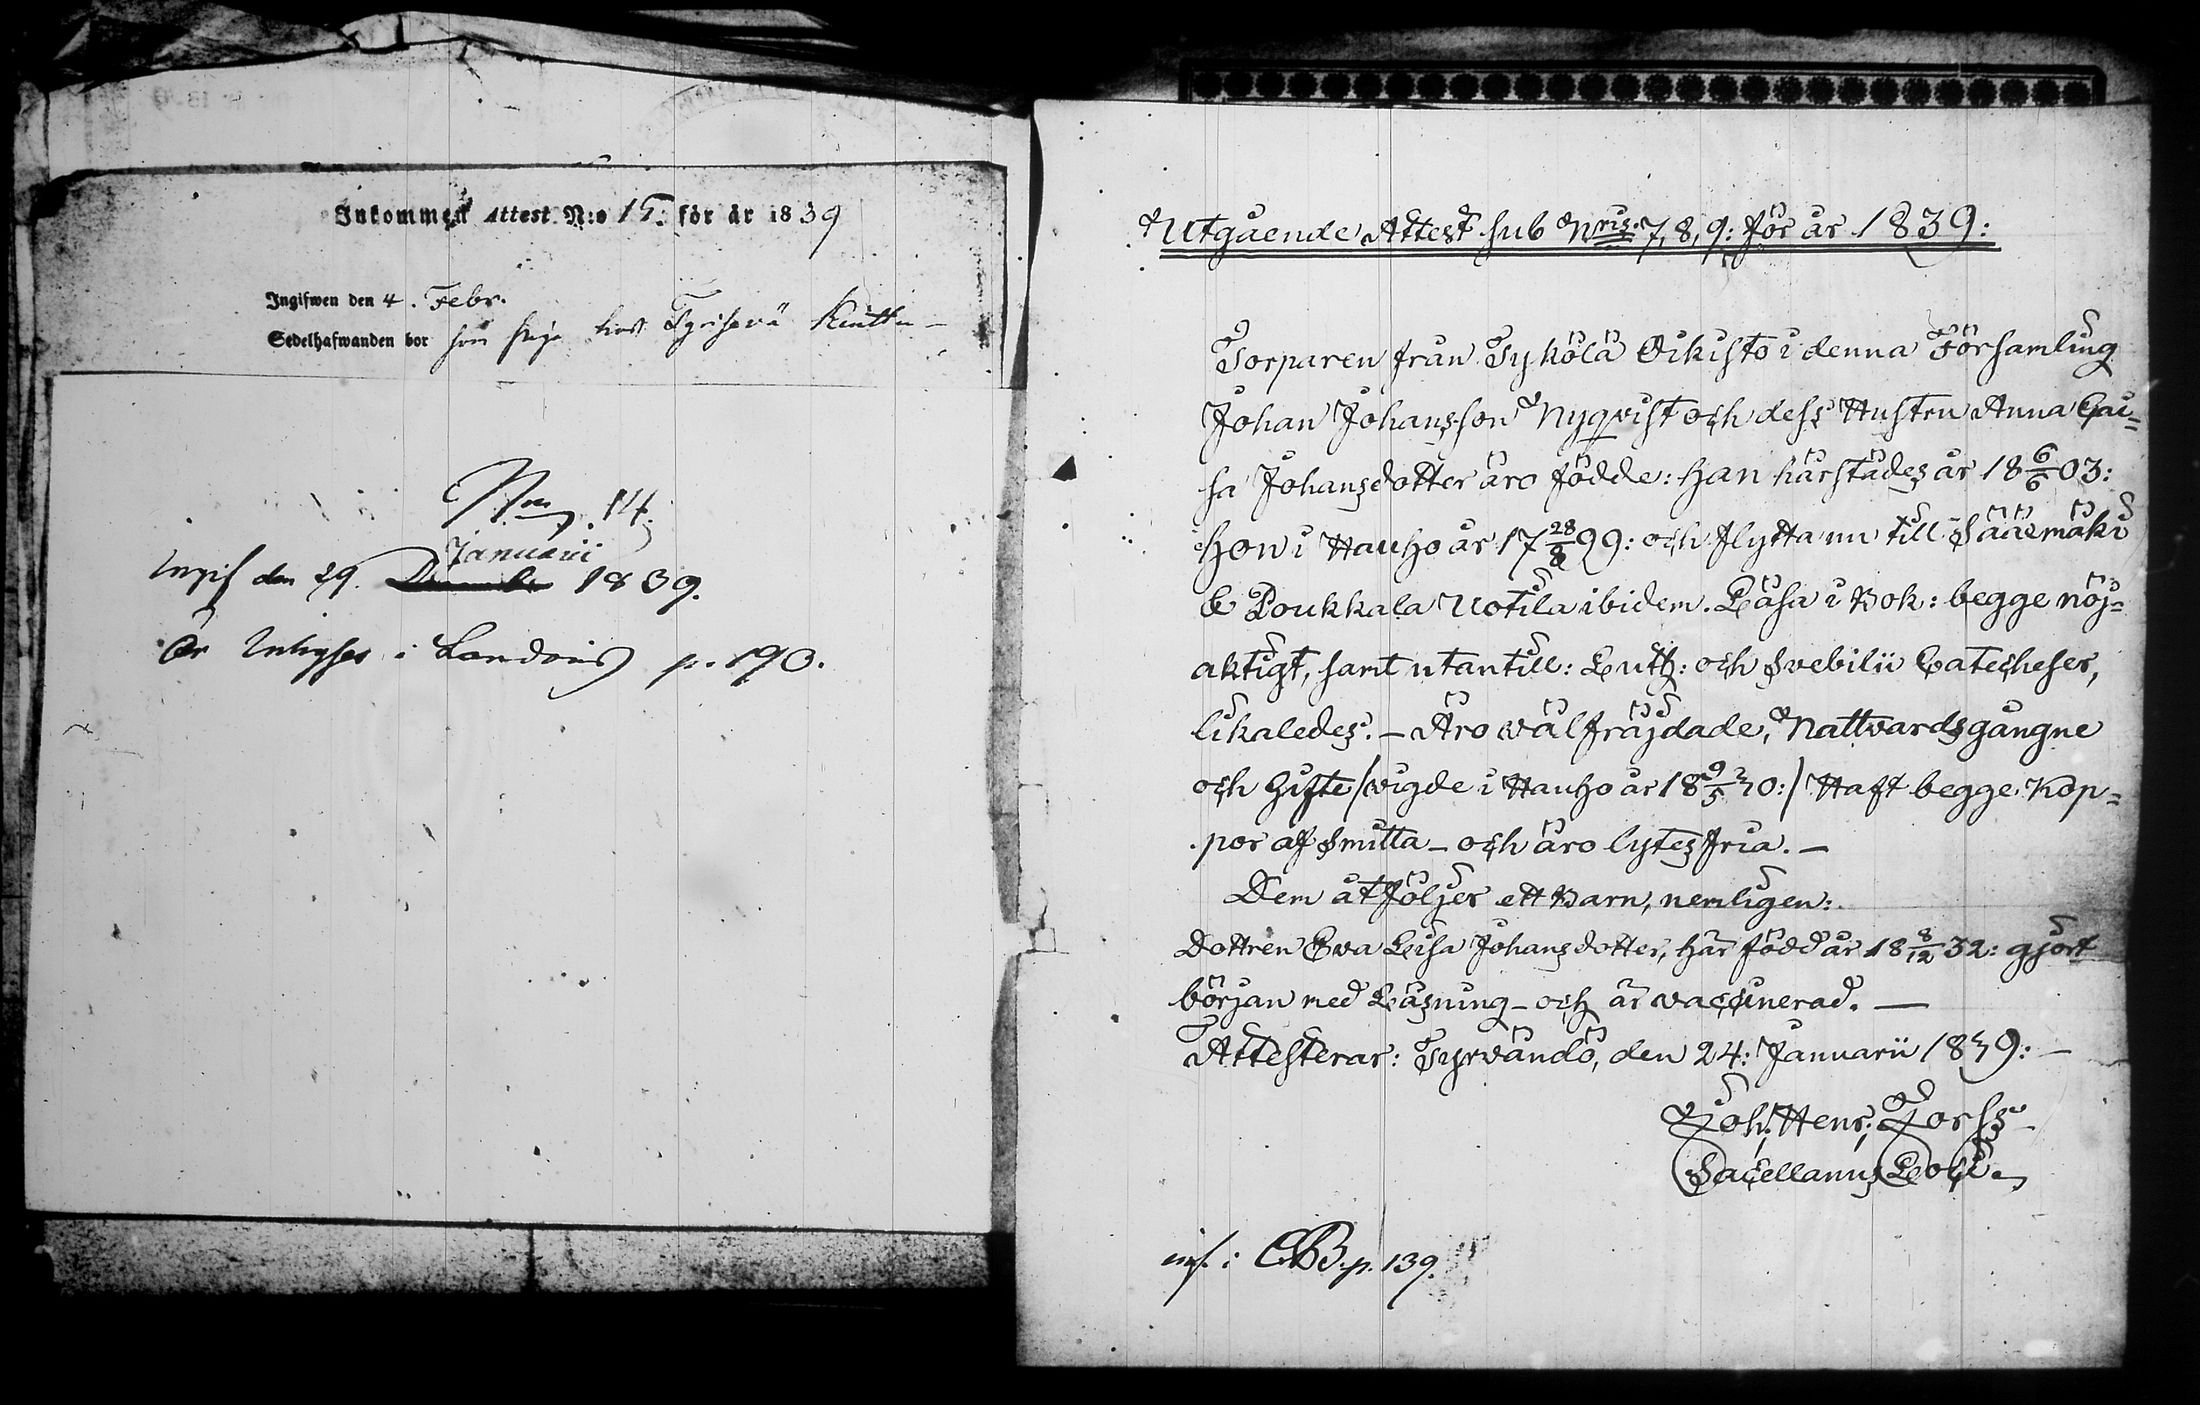 Inkommen Attest N:o 15. för år 1839
Ingifwen den 4. Febr.
Sedelhafwanden bor hos
N:o 14.
Januarii
Ingif den 29. 1839.
Är p. 190.
Utgående Attest sub N:ris 7, 8, 9: för år 1839:
Torparen från Tykölä Oikisto i denna Församling
Johan Johansson Nyqvist och dess Hustru Anna Cai=
sa Johansdotter äro födde: Han härstädes år 18 6/6 03:
Hon i Hauho år 17 28/8 99: och flytta nu till Sääxmäki
& Poukkala Uotila ibidem. Läsa i Bok: begge nöj=
aktigt, samt utantill: Luth: och Svebilii Catecheser,
likaledes. – Äro välfräjdade, Nattvardsgångne
och Gifte /vigde i Hauho år 18 9/5 30:/ Haft begge Kop=
por af Smitta – och äro lytesfria. –
Dem åtföljer ett Barn, nemligen:
Dottren Eva Leisa Johansdotter, här född år 18 8/12 32: gjort
början med Läsning – och är vaccinerad. —
Attesterar: Tyrvändö, den 24: Januarii 1839: –
Joh: Henr: Forss
Sacellanus Loci.
inf. i C.B. p. 139.